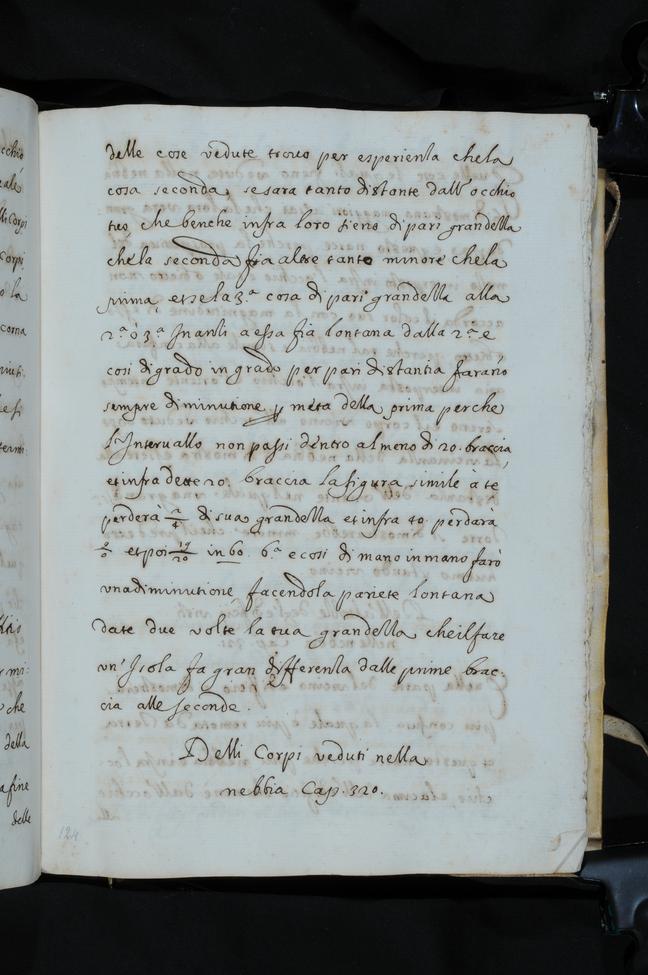 delle cose vedute trouo per esperienza chela
cosa seconda, se sara tanto distante dall'occhio
che benche infra loro sieno di pari grandezza
chela seconda fia altre tanto minore chela
prima, et se la 3.a cosa di pari grandezza alla
2.a ò 3.a Inanzi a essa fia lontana dalla 2.a e
cosi di grado in grado per pari distantia farano
sempre diminutione meta della prima perche
l'Interuallo non passi dentro al meno di 20. braccia,
et infra dette 20. braccia la figura simile à te
perderà 2/4 di sua grandezza et infra 40. perdarà
et poi 19/20 in 60 6.a e cosi di mano in mano farò
vna diminutione facendola pariete lontana
date due volte la tua grandezza che il fare
vn' Isola fa gran differenza dalle prime brac-
cia alle seconde.
Delli Corpi veduti nella
nebbia Cap. 320.
124
occhio
Corpi
o la
che
della
afine
delle